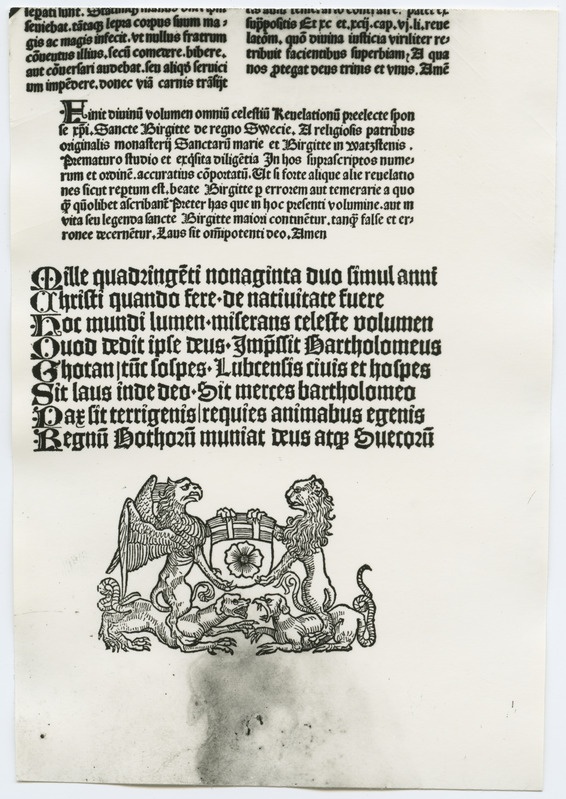 seniebat. tātaq₃ lepra corpus suum ma⸗
gis ac magis infecit. vt nullus fratrum
cōuentus illius. secū comedere. bibere.
aut cōuersari audebat. seu aliqd serui
um impēdere. donec viā carnis trāsijt
suppositis Et xc et. xcij. cap. vj. li. reue
latōm, quō diuina iusticia viriliter re⸗
tribuit facientibus superbiam; A qua
nos ꝓtegat deus trinus et vnus. Amē
Finit diuinū volumen omniū celestiū Reuelationū preelecte spon
se xp̄i. Sancte Birgitte de regno Swecie. A religiosis patribus
originalis monasterij Sanctarū marie et Birgitte in watzstenis.
Prematuro studio et exq̄sita diligētia In hos suprascriptos nume⸗
rum et ordinē. accuratius cōportatū. Vt si forte alique alie reuelatio
nes sicut reptum est, beate Birgitte p errorem aut temerarie a quo
q̄ quolibet ascribant Preter has que in hoc presenti volumine. aut in
vita seu legenda sancte Birgitte maiori continētur, tanq̄ false et er⸗
ronee decernētur. Laus sit om̄ipotenti deo. Amen
Mille quadringēti nonaginta duo simul anni
Christi quando fere · de natiuitate fuere
Hoc mundi lumen · miserans celeste volumen
Quod dedit ipse deus · Imp̄ssit Bartholomeus
Ghotan | tūc sospes · Lubcensis ciuis et hospes
Sit laus inde deo · Sit merces bartholomeo
Pax sit terrigenis | requies animabus egenis
Regnū Gothorū muniat deus atq₃ Suecorū